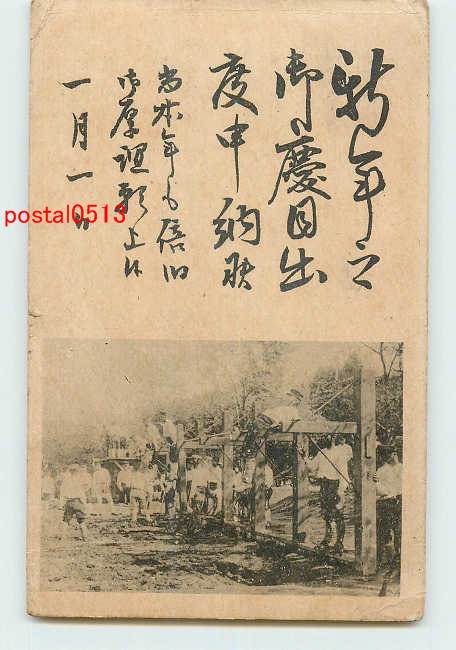 新年之
御慶目出
度申納候
尚本年も倍旧
御厚誼願上候
一月一日
postal0513